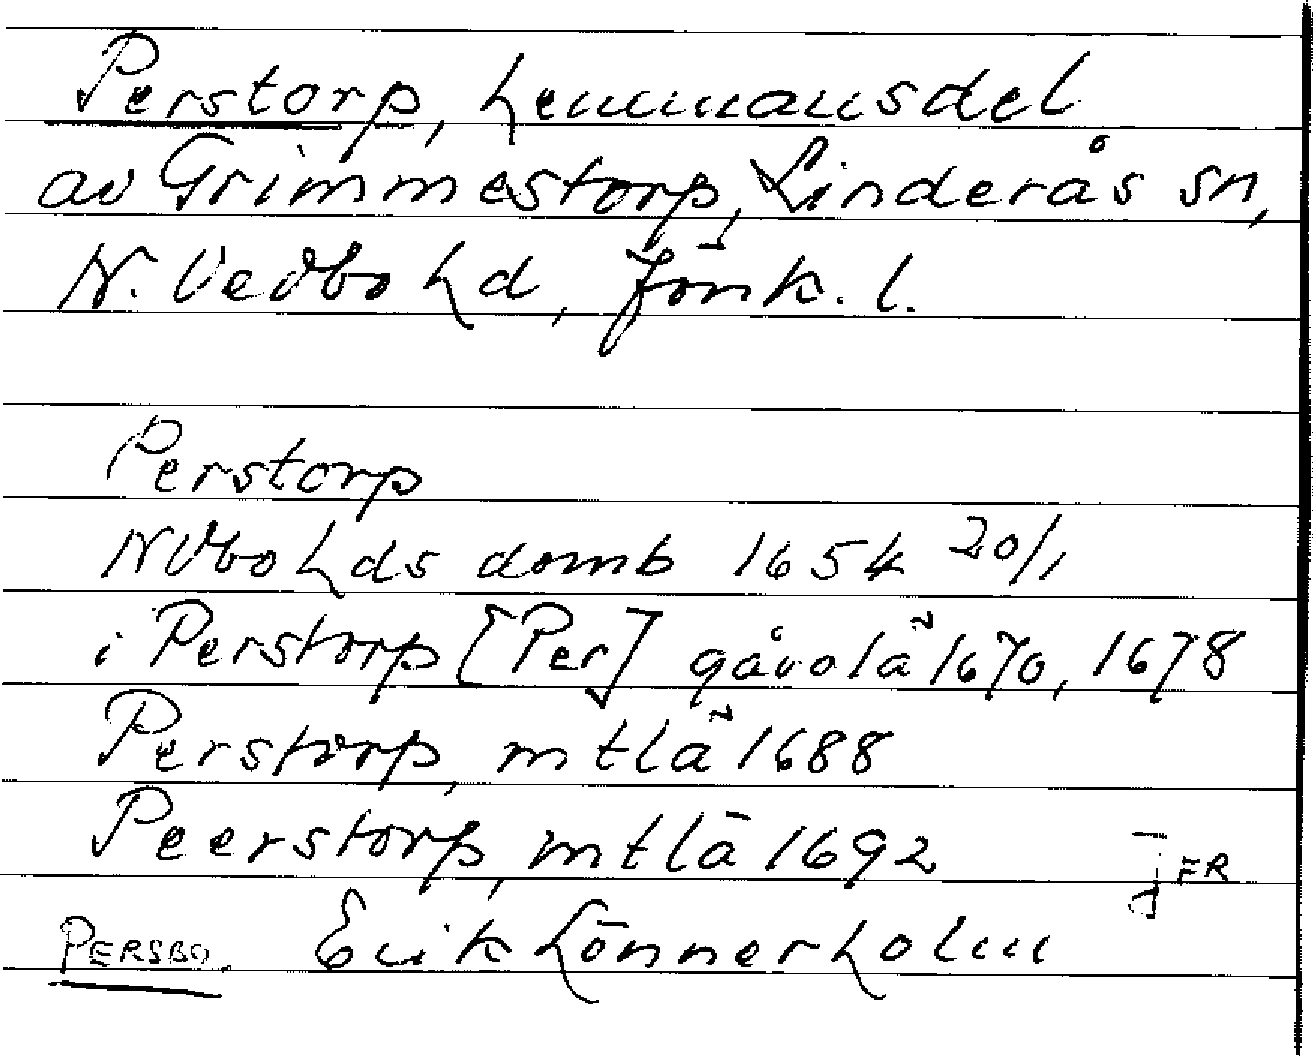 Perstorp, hemmansdel
av Grimmestorp, Linderås sn,
N. Vedbo hd, Jönk. l.
Perstorp
NVbo hds domb 1654 20/1
i Perstorp [Per] gåvolä 1670, 1678
Perstorp, mtlä 1688
Peerstorp, mtlä 1692
JFR
PERSBO. Erik Lönnerholm